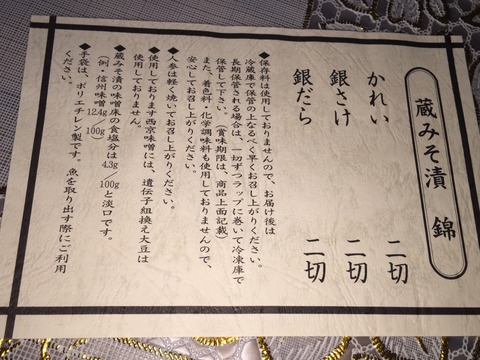 蔵みそ漬 錦
かれい 二切
銀さけ 二切
銀だら 二切
◆保存料は使用しておりませんので、お届け後は
冷蔵庫で保管の上なるべく早くお召し上がりください。
長期保管される場合は、一切ずつラップに巻いて冷凍庫で
保管して下さい。(賞味期限は、商品上面記載)
また、着色料・化学調味料も使用しておりませんので、
安心してお召し上がりください。
◆人参は軽く焼いてお召し上がりください。
◆使用しております西京味噌には、遺伝子組換え大豆は
使用しておりません。
◆蔵みそ漬の味噌床の食塩分は4.3g/100gと淡口です。
(例・信州味噌12.4g/100g)
◆手袋は、ポリエチレン製です。魚を取り出す際にご利用
ください。